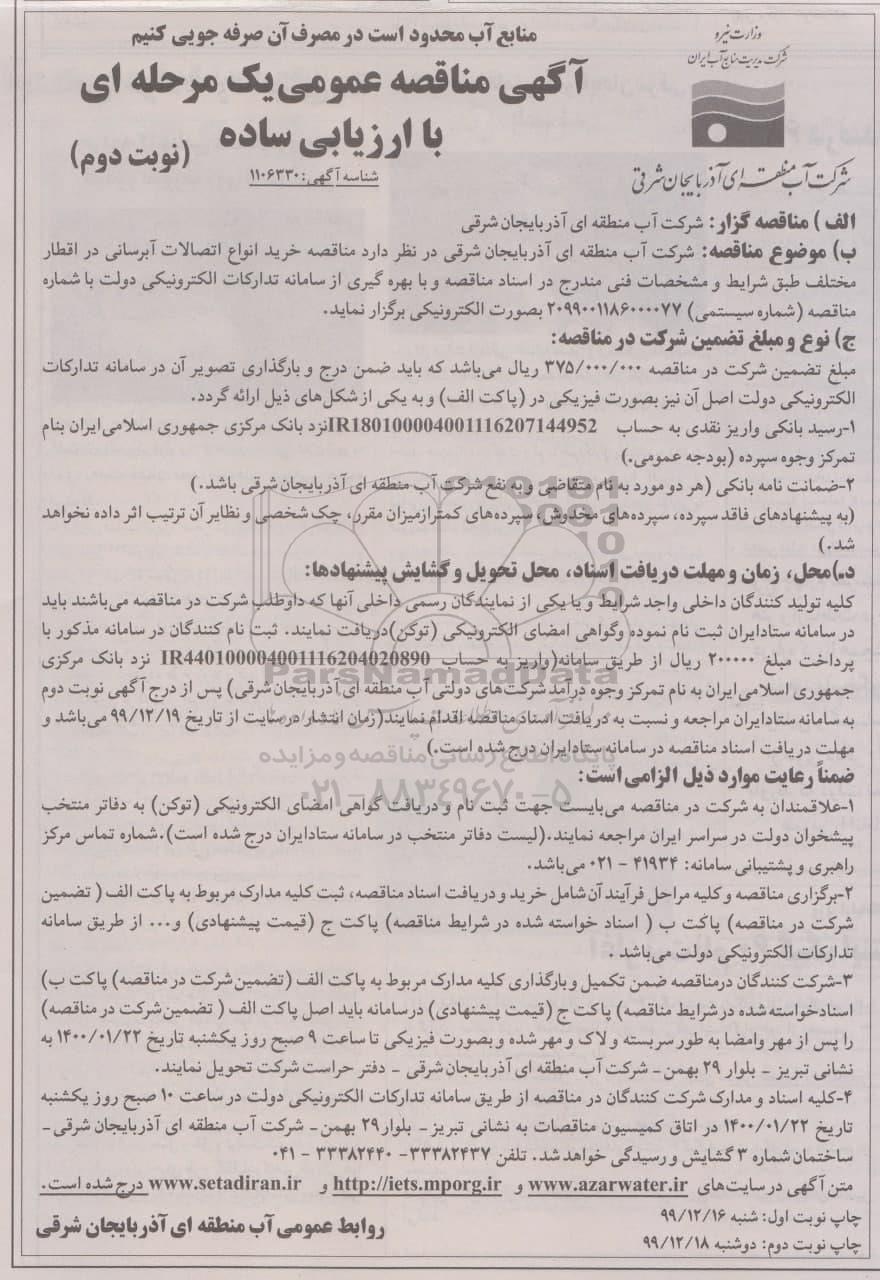 منابع آب محدود است در مصرف آن صرفه جویی کنیم
وزارت نیرو
شرکت مدیریت منابع آب ایران
شرکت آب منطقه ای آذربایجان شرقی
آگهی مناقصه عمومی یک مرحله ای
با ارزیابی ساده
(نوبت دوم)
شناسه آگهی: ۱۱۰۶۳۳۰
الف) مناقصه گزار: شرکت آب منطقه ای آذربایجان شرقی
ب) موضوع مناقصه: شرکت آب منطقه ای آذربایجان شرقی در نظر دارد مناقصه خرید انواع اتصالات آبرسانی در اقطار
مختلف طبق شرایط و مشخصات فنی مندرج در اسناد مناقصه و با بهره گیری از سامانه تدارکات الکترونیکی دولت با شماره
مناقصه (شماره سیستمی) ۲۰۹۹۰۰۱۱۸۶۰۰۰۰۷۷ بصورت الکترونیکی برگزار نماید.
ج) نوع و مبلغ تضمین شرکت در مناقصه:
مبلغ تضمین شرکت در مناقصه ۳۷۵/۰۰۰/۰۰۰ ریال می‌باشد که باید ضمن درج و بارگذاری تصویر آن در سامانه تدارکات
الکترونیکی دولت اصل آن نیز بصورت فیزیکی در (پاکت الف) و به یکی از شکل‌های ذیل ارائه گردد.
۱-رسید بانکی واریز نقدی به حساب IR180100004001116207144952نزد بانک مرکزی جمهوری اسلامی ایران بنام
تمرکز وجوه سپرده (بودجه عمومی.)
۲-ضمانت نامه بانکی (هر دو مورد به نام متقاضی و به نفع شرکت آب منطقه ای آذربایجان شرقی باشد.)
(به پیشنهادهای فاقد سپرده، سپرده‌های مخدوش، سپرده‌های کمتر ازمیزان مقرر، چک شخصی و نظایر آن ترتیب اثر داده نخواهد
شد.)
د.)محل، زمان و مهلت دریافت اسناد، محل تحویل و گشایش پیشنهادها:
کلیه تولید کنندگان داخلی واجد شرایط و یا یکی از نمایندگان رسمی داخلی آنها که داوطلب شرکت در مناقصه می‌باشند باید
در سامانه ستادایران ثبت نام نموده وگواهی امضای الکترونیکی (توکن)دریافت نمایند. ثبت نام کنندگان در سامانه مذکور با
پرداخت مبلغ ۲۰۰۰۰۰ ریال از طریق سامانه(واریز به حساب IR440100004001116204020890 نزد بانک مرکزی
جمهوری اسلامی ایران به نام تمرکز وجوه درآمد شرکت‌های دولتی آب منطقه ای آذربایجان شرقی) پس از درج آگهی نوبت دوم
به سامانه ستادایران مراجعه و نسبت به دریافت اسناد مناقصه اقدام نمایند(زمان انتشار در سایت از تاریخ ۹۹/۱۲/۱۹ می‌باشد و
مهلت دریافت اسناد مناقصه در سامانه ستادایران درج شده است.)
ضمناً رعایت موارد ذیل الزامی است:
۱-علاقمندان به شرکت در مناقصه می‌بایست جهت ثبت نام و دریافت گواهی امضای الکترونیکی (توکن) به دفاتر منتخب
پیشخوان دولت در سراسر ایران مراجعه نمایند.(لیست دفاتر منتخب در سامانه ستادایران درج شده است).شماره تماس مرکز
راهبری و پشتیبانی سامانه: ۴۱۹۳۴ - ۰۲۱ می‌باشد.
۲-برگزاری مناقصه و کلیه مراحل فرآیند آن شامل خرید و دریافت اسناد مناقصه، ثبت کلیه مدارک مربوط به پاکت الف ( تضمین
شرکت در مناقصه) پاکت ب ( اسناد خواسته شده در شرایط مناقصه) پاکت ج (قیمت پیشنهادی) و... از طریق سامانه
تدارکات الکترونیکی دولت می‌باشد .
۳-شرکت کنندگان درمناقصه ضمن تکمیل و بارگذاری کلیه مدارک مربوط به پاکت الف (تضمین شرکت در مناقصه) پاکت ب)
اسنادخواسته شده در شرایط مناقصه) پاکت ج (قیمت پیشنهادی) درسامانه باید اصل پاکت الف ( تضمین شرکت در مناقصه)
را پس از مهر وامضا به طور سربسته و لاک و مهر شده و بصورت فیزیکی تا ساعت ۹ صبح روز یکشنبه تاریخ ۱۴۰۰/۰۱/۲۲ به
نشانی تبریز - بلوار ۲۹ بهمن - شرکت آب منطقه ای آذربایجان شرقی - دفتر حراست شرکت تحویل نمایند.
۴-کلیه اسناد و مدارک شرکت کنندگان در مناقصه از طریق سامانه تدارکات الکترونیکی دولت در ساعت ۱۰ صبح روز یکشنبه
تاریخ ۱۴۰۰/۰۱/۲۲ در اتاق کمیسیون مناقصات به نشانی تبریز - بلوار۲۹ بهمن - شرکت آب منطقه ای آذربایجان شرقی -
ساختمان شماره ۳ گشایش و رسیدگی خواهد شد. تلفن ۳۳۳۸۲۴۳۷- ۳۳۳۸۲۴۴۰ - ۰۴۱
متن آگهی در سایت‌های www.azarwater.ir و http://iets.mporg.ir و www.setadiran.ir درج شده است.
چاپ نوبت اول: شنبه ۹۹/۱۲/۱۶
چاپ نوبت دوم: دوشنبه ۹۹/۱۲/۱۸
روابط عمومی آب منطقه ای آذربایجان شرقی
ParsNamadData
پایگاه اطلاع رسانی مناقصه و مزایده
۰۲۱-۸۸۳۴۹۶۷۰-۵